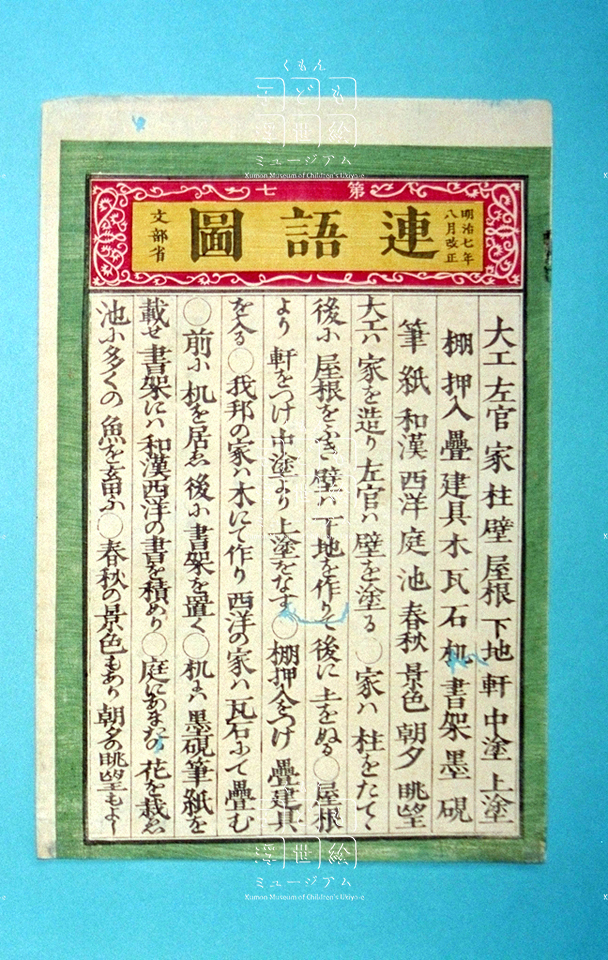 くもん
こども
浮世絵
ミュージアム
Kumon Museum of Children's Ukiyo-e
第七
明治七年
八月改正
連語圖
文部省
大工 左官 家 柱 壁 屋根 下地 軒 中塗 上塗
棚 押入 疊 建具 木 瓦 石 机 書架 墨 硯
筆 紙 和漢 西洋 庭 池 春秋 景色 朝夕 眺望
大工ハ 家を造り 左官ハ 壁を塗る ○ 家ハ 柱をたてゝ
後ふ 屋根をふき 壁ハ 下地を作りて 後に 土をぬる ○ 屋根
より 軒をつけ 中塗より 上塗をなす ○ 棚押入をつけ 疊建具
を入る ○ 我邦の家ハ 木にて作り 西洋の家ハ 瓦石ふて疊む
○ 前ふ 机を居ゑ 後ふ 書架を置く ○ 机にハ 墨硯筆紙を
載せ 書架にハ 和漢西洋の書を積めり ○ 庭にあまたの 花を栽ゑ
池ふ多くの 魚を畜ふ ○ 春秋の景色もあり 朝夕の眺望もよし
浮世絵
ミュージアム
Kumon Museum of Children's Ukiyo-e